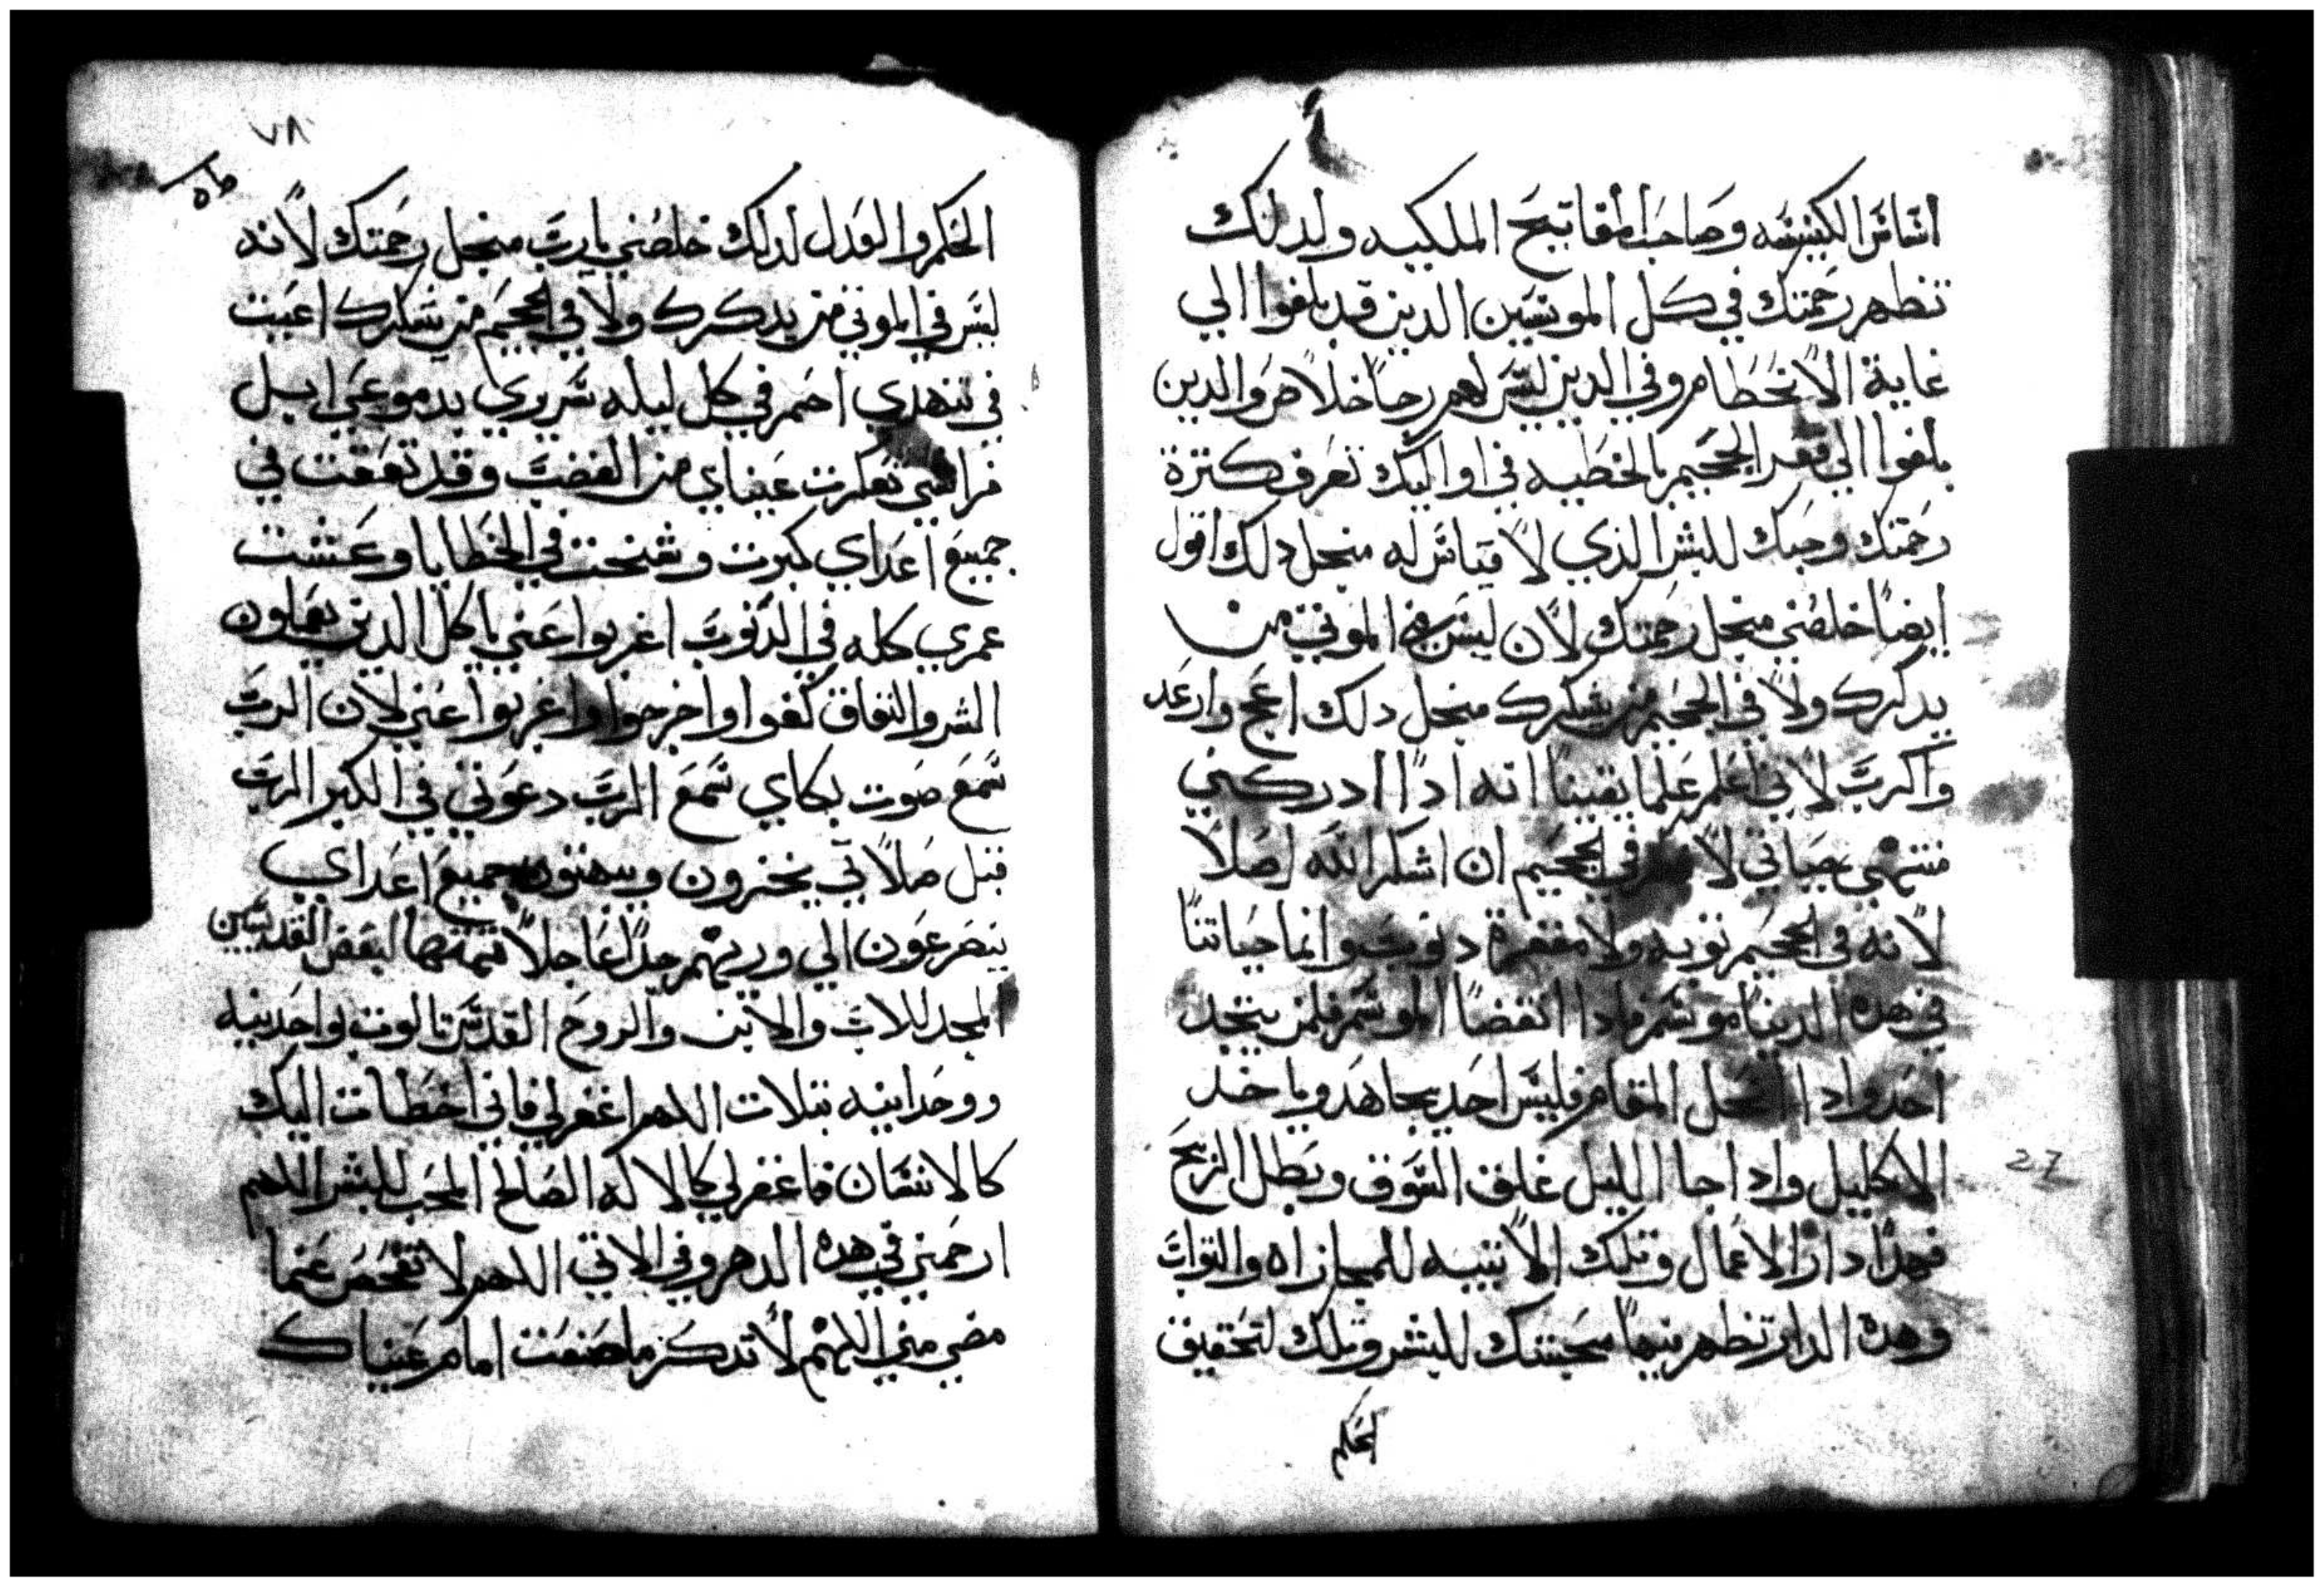 اساس الكنيسه وصاحب المفاتيح الملكيه ولدلك
تظهر رحمتك في كل الموتسين الدين قد بلغوا الي
غاية الانحطام وفي الدين ليس لهم رجا خلاص والدين
بلغوا الي قعر الجحيم بالخطيه في اوليك تعرف كترة
رحمتك وحبك للبشر الذي لا قياس له منجل دلك اقول
ايضا خلصني منجل رحمتك لان ليس في الموتي من
يدكرك ولا في الجحيم من يشكرك منجل دلك اعج وارعد
واكرب لاني اعلم علما يقينا انه ادا ادركني
منتهي حياتي لا في الجحيم ان اشكر الله اصلا
لانه في الجحيم توبه ولا مغفرة دنوب وانما حياتنا
في هده الدنيا موسم فادا انقضا الموسم فلمن يتجد
احد وادا انحل المقام فليس احد يجاهد وياخد
الاكليل وادا جا الليل غلق السوق وبطل الربح
فهدا دار الاعمال وتلك الاتيه للمجازاه والتواب
وهده الدار تظهر فيها محبتك للبشر وتلك لتحقيق
الحكم
٧٨
الحكم والعدل لدلك خلصني يا رب منجل رحمتك لانه
ليس في الموتي من يدكرك ولا في الجحيم من يشكرك اعيت
في تنهدي احم في كل ليله سريري بدموعي ابل
فراشي تعكرت عيناي من الغضب وقد تعقت في
جميع اعداي كبرت وشخت في الخطايا وعشت
عمري كله في الدنوب اغربوا عني يا كل الدين يعملون
الشر والنفاق كفوا واخرجوا واغربوا عني لان الرب
سمع صوت بكاي سمع الرب دعوتي في الكبر الرب
قبل صلاتي يخزون ويبهتون جميع اعداي
يتضرعون الي وريهم جدا عاجلا تيمتها لبعض القديسين
المجد للاب والابن والروح القدس تالوت بواحدنيه
ووحدانيه بتلات اللهم اغفر لي فاني اخطات اليك
كالانسان فاغفر لي كالاله الصالح المحب للبشر اللهم
ارحمني في هده الدهر وفي الاتي اللهم لا تفحص عنما
مضي مني اللهم لا تدكر ما صنعت امام عيناك